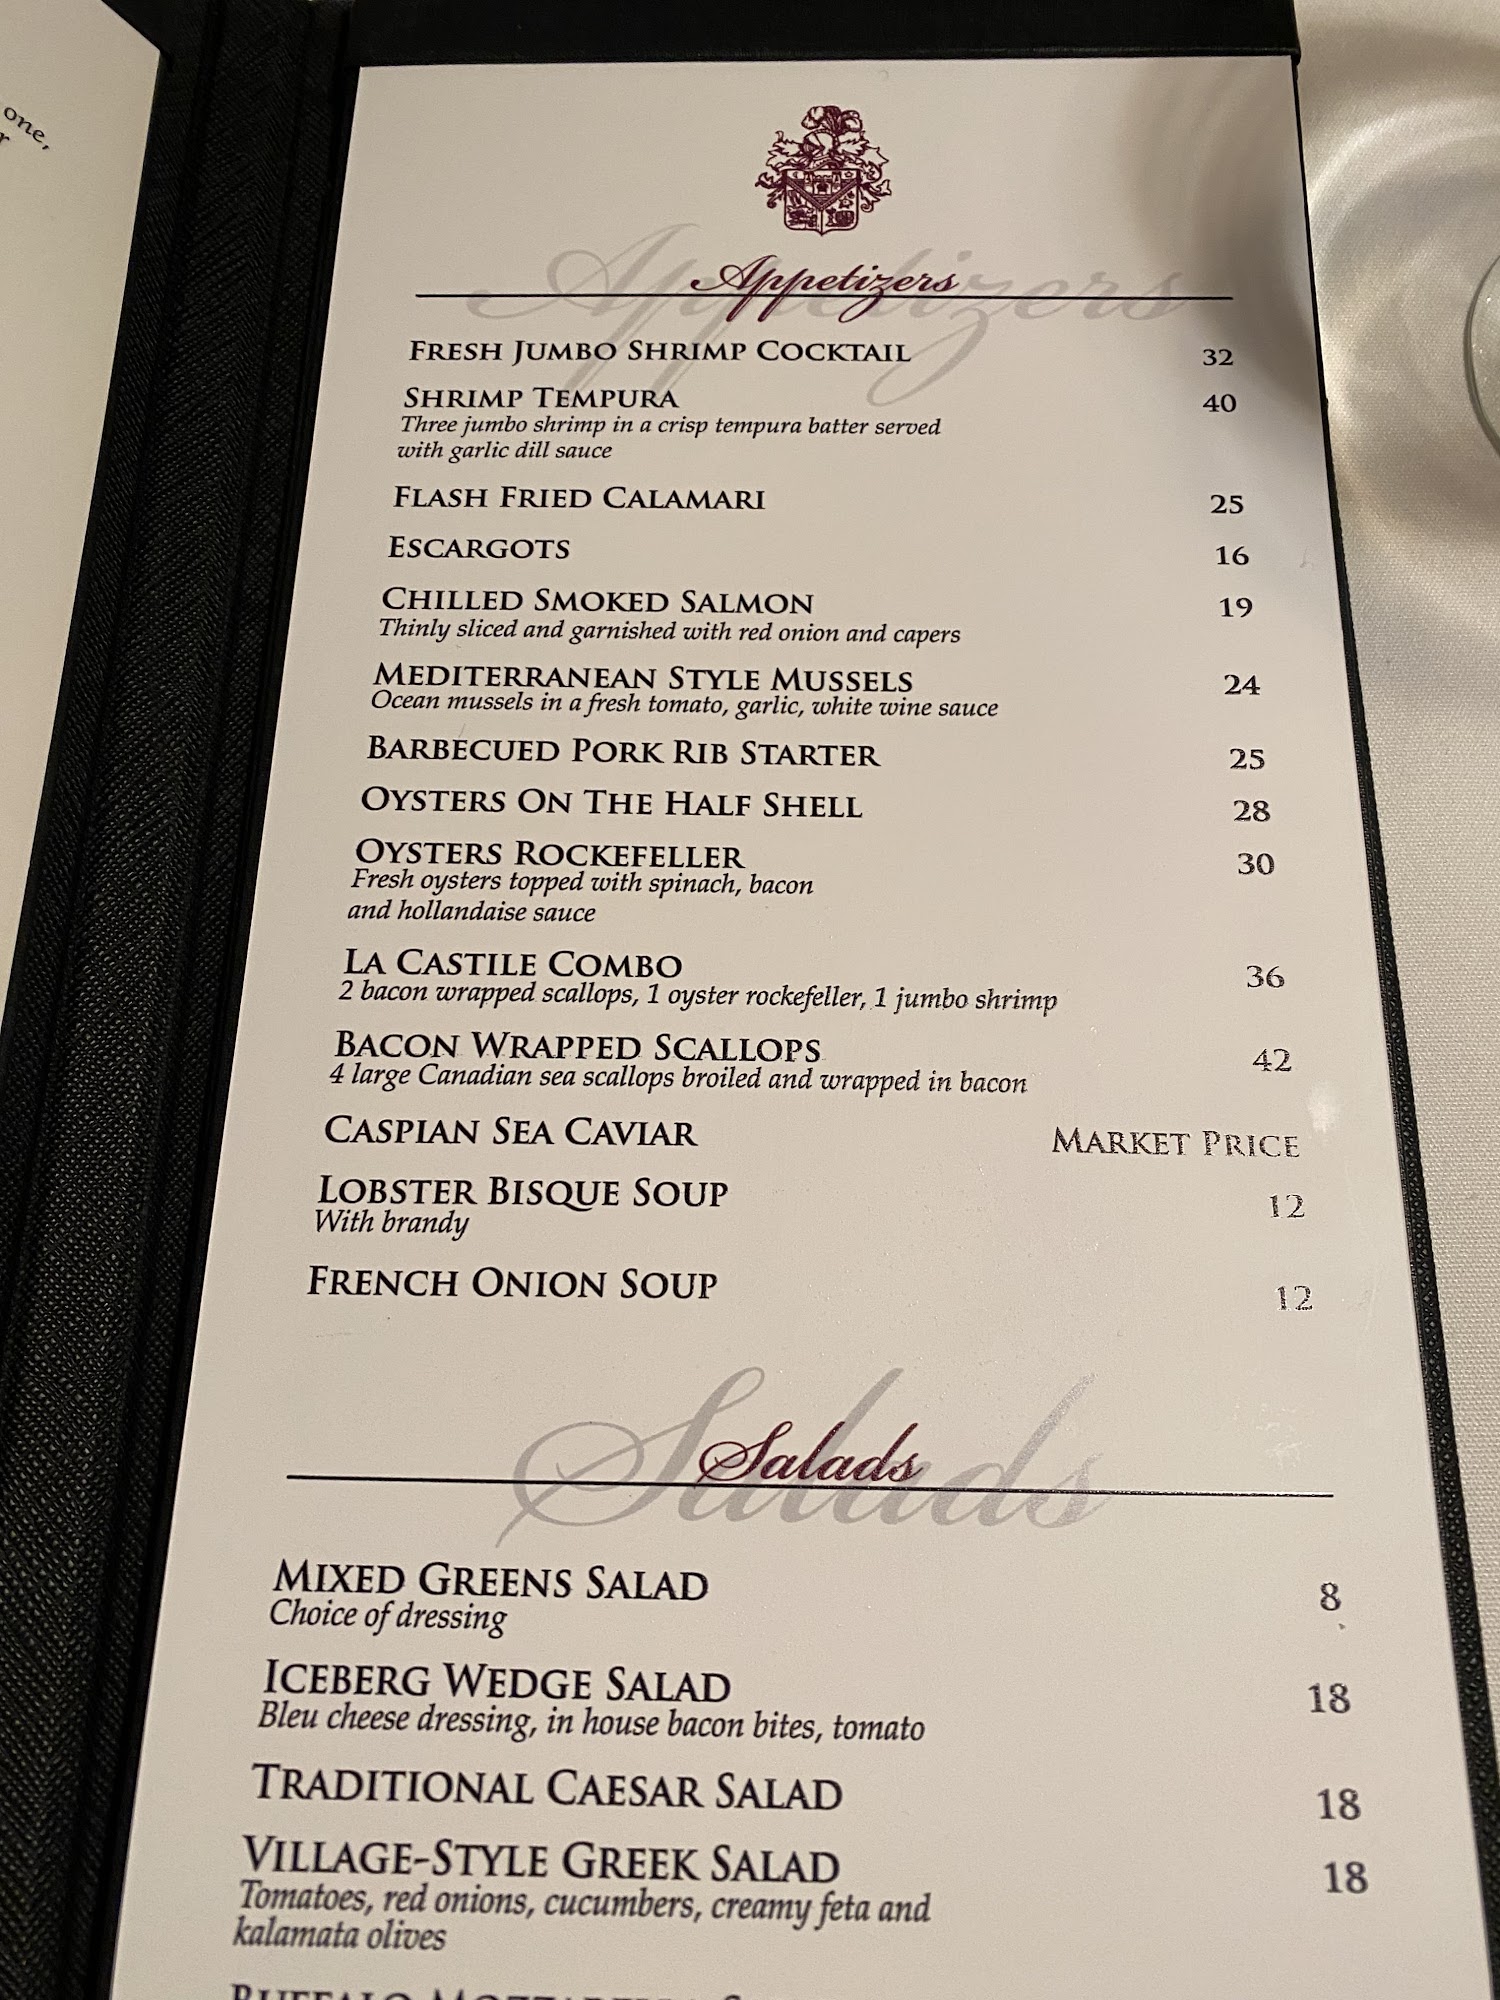 one,
Appetizers
Fresh Jumbo Shrimp Cocktail 32
Shrimp Tempura 40
Three jumbo shrimp in a crisp tempura batter served
with garlic dill sauce
Flash Fried Calamari 25
Escargots 16
Chilled Smoked Salmon 19
Thinly sliced and garnished with red onion and capers
Mediterranean Style Mussels 24
Ocean mussels in a fresh tomato, garlic, white wine sauce
Barbecued Pork Rib Starter 25
Oysters On The Half Shell 28
Oysters Rockefeller 30
Fresh oysters topped with spinach, bacon
and hollandaise sauce
La Castile Combo 36
2 bacon wrapped scallops, 1 oyster rockefeller, 1 jumbo shrimp
Bacon Wrapped Scallops 42
4 large Canadian sea scallops broiled and wrapped in bacon
Caspian Sea Caviar Market Price
Lobster Bisque Soup 12
With brandy
French Onion Soup 12
Salads
Mixed Greens Salad 8
Choice of dressing
Iceberg Wedge Salad 18
Bleu cheese dressing, in house bacon bites, tomato
Traditional Caesar Salad 18
Village-Style Greek Salad 18
Tomatoes, red onions, cucumbers, creamy feta and
kalamata olives